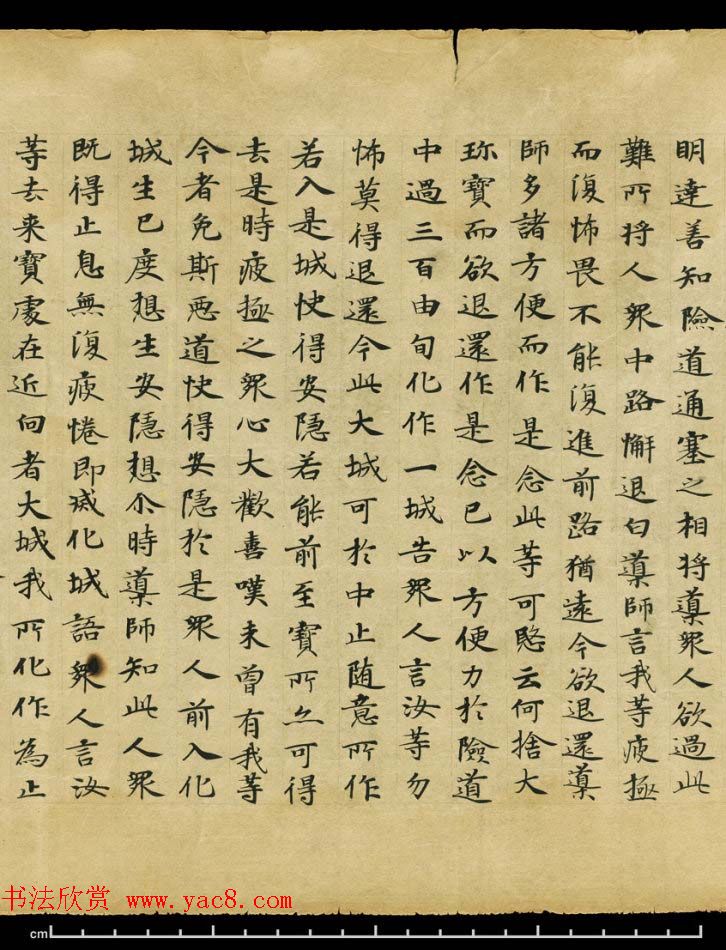 明達善知險道通塞之相將導眾人欲過此
難所將人眾中路懈退白導師言我等疲極
而復怖畏不能復進前路猶遠今欲退還導
師多諸方便而作是念此等可愍云何捨大
珍寶而欲退還作是念已以方便力於險道
中過三百由旬化作一城告眾人言汝等勿
怖莫得退還今此大城可於中止随意所作
若入是城快得安隱若能前至寶所亦可得
去是時疲極之眾心大歡喜嘆未曾有我等
今者免斯惡道快得安隱於是眾人前入化
城生已度想生安隱想尒時導師知此人眾
既得止息無復疲惓即滅化城語眾人言汝
等去来寶處在近向者大城我所化作為止
书法欣赏 www.yac8.com
cm